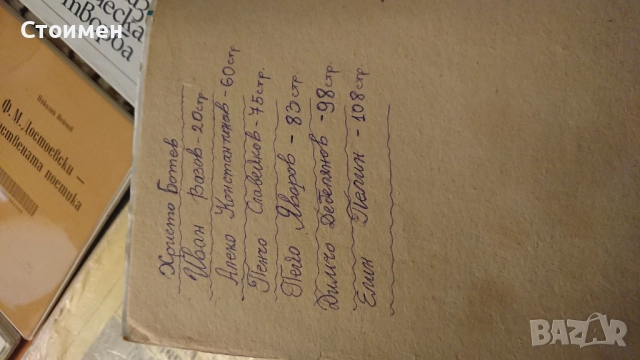 Стоимен
Христо Ботев
Иван Вазов - 20 стр
Алеко Константинов - 60 стр
Пенчо Славейков - 75 стр.
Пейо Яворов - 83 стр
Димчо Дебелянов - 98 стр.
Елин Пелин - 108 стр.
Ф. М. Достоевски –
поетика
BAZAR
.bg